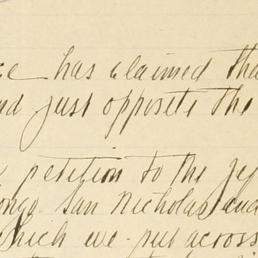 has claimed tha
nd just opposite the
petition to the ju
ongo San Nicholas and
which we put across